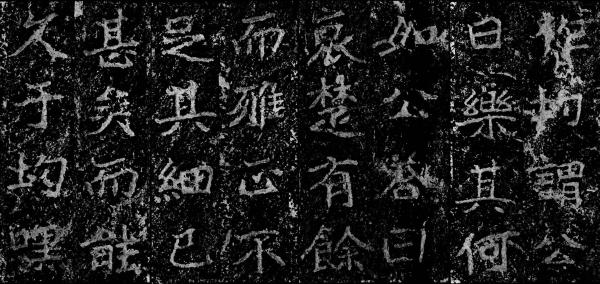 均謂公
曰樂其何
如公答曰
哀楚有餘
而雅正不
足其細已
甚矣而能
久乎均嘿